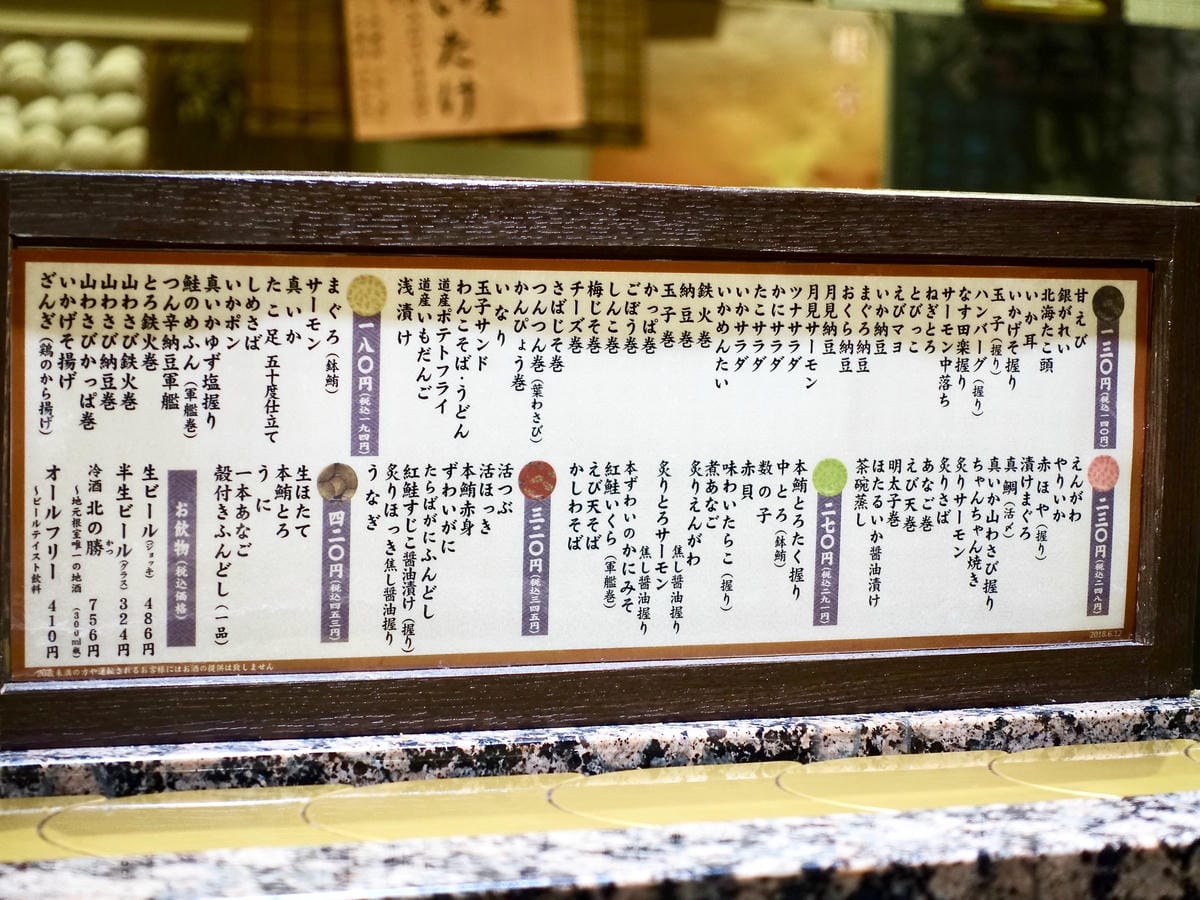 いたけ
一三〇円(税込一四〇円)
甘えび
銀がれい
北海たこ頭
いか耳
いかげそ握り
玉子(握り)
ハンバーグ(握り)
なす田楽握り
サーモン中落ち
ねぎとろ
とびっこ
えびマヨ
いか納豆
まぐろ納豆
おくら納豆
月見納豆
月見サーモン
ツナサラダ
かにサラダ
たこサラダ
いかサラダ
いかめんたい
鉄火巻
納豆巻
玉子巻
かっぱ巻
ごぼう巻
しんこ巻
梅じそ巻
チーズ巻
さばじそ巻
つんつん巻(葉わさび)
かんぴょう巻
いなり
玉子サンド
わんこそば・うどん
道産ポテトフライ
道産いもだんご
浅漬け
一八〇円(税込一九四円)
まぐろ(鉢鮪)
サーモン
真いか
たこ足 五十度仕立て
しめさば
いかポン
真いかゆず塩握り
鮭のめふん(軍艦巻)
つん辛納豆軍艦
とろ鉄火巻
山わさび鉄火巻
山わさび納豆巻
山わさびかっぱ巻
いかげそ揚げ
ざんぎ(鶏のから揚げ)
二三〇円(税込二四八円)
えんがわ
やりいか
赤ほや(握り)
漬けまぐろ
真鯛(活〆)
真いか山わさび握り
ちゃんちゃん焼き
炙りサーモン
炙りさば
あなご巻
えび天巻
明太子巻
ほたるいか醤油漬け
茶碗蒸し
二七〇円(税込二九一円)
本鮪とろたく握り
中とろ(鉢鮪)
数の子
赤貝
味わいたらこ(握り)
煮あなご
炙りえんがわ
焦し醤油握り
炙りとろサーモン
焦し醤油握り
本ずわいのかにみそ
紅鮭いくら(軍艦巻)
えび天そば
かしわそば
三二〇円(税込三四五円)
活つぶ
活ほっき
本鮪赤身
ずわいがに
たらばがにふんどし
紅鮭すじこ醤油漬け(握り)
炙りほっき焦し醤油握り
うなぎ
四二〇円(税込四五三円)
生ほたて
本鮪とろ
うに
一本あなご
殻付きふんどし(一品)
お飲物(税込価格)
生ビール(ジョッキ) 486円
半生ビール(グラス) 324円
冷酒 北の勝 756円
かつ
~地元根室唯一の地酒 (300ml瓶)
オールフリー 410円
~ビールテイスト飲料
2018.6.12
20歳未満の方や運転されるお客様にはお酒の提供は致しません